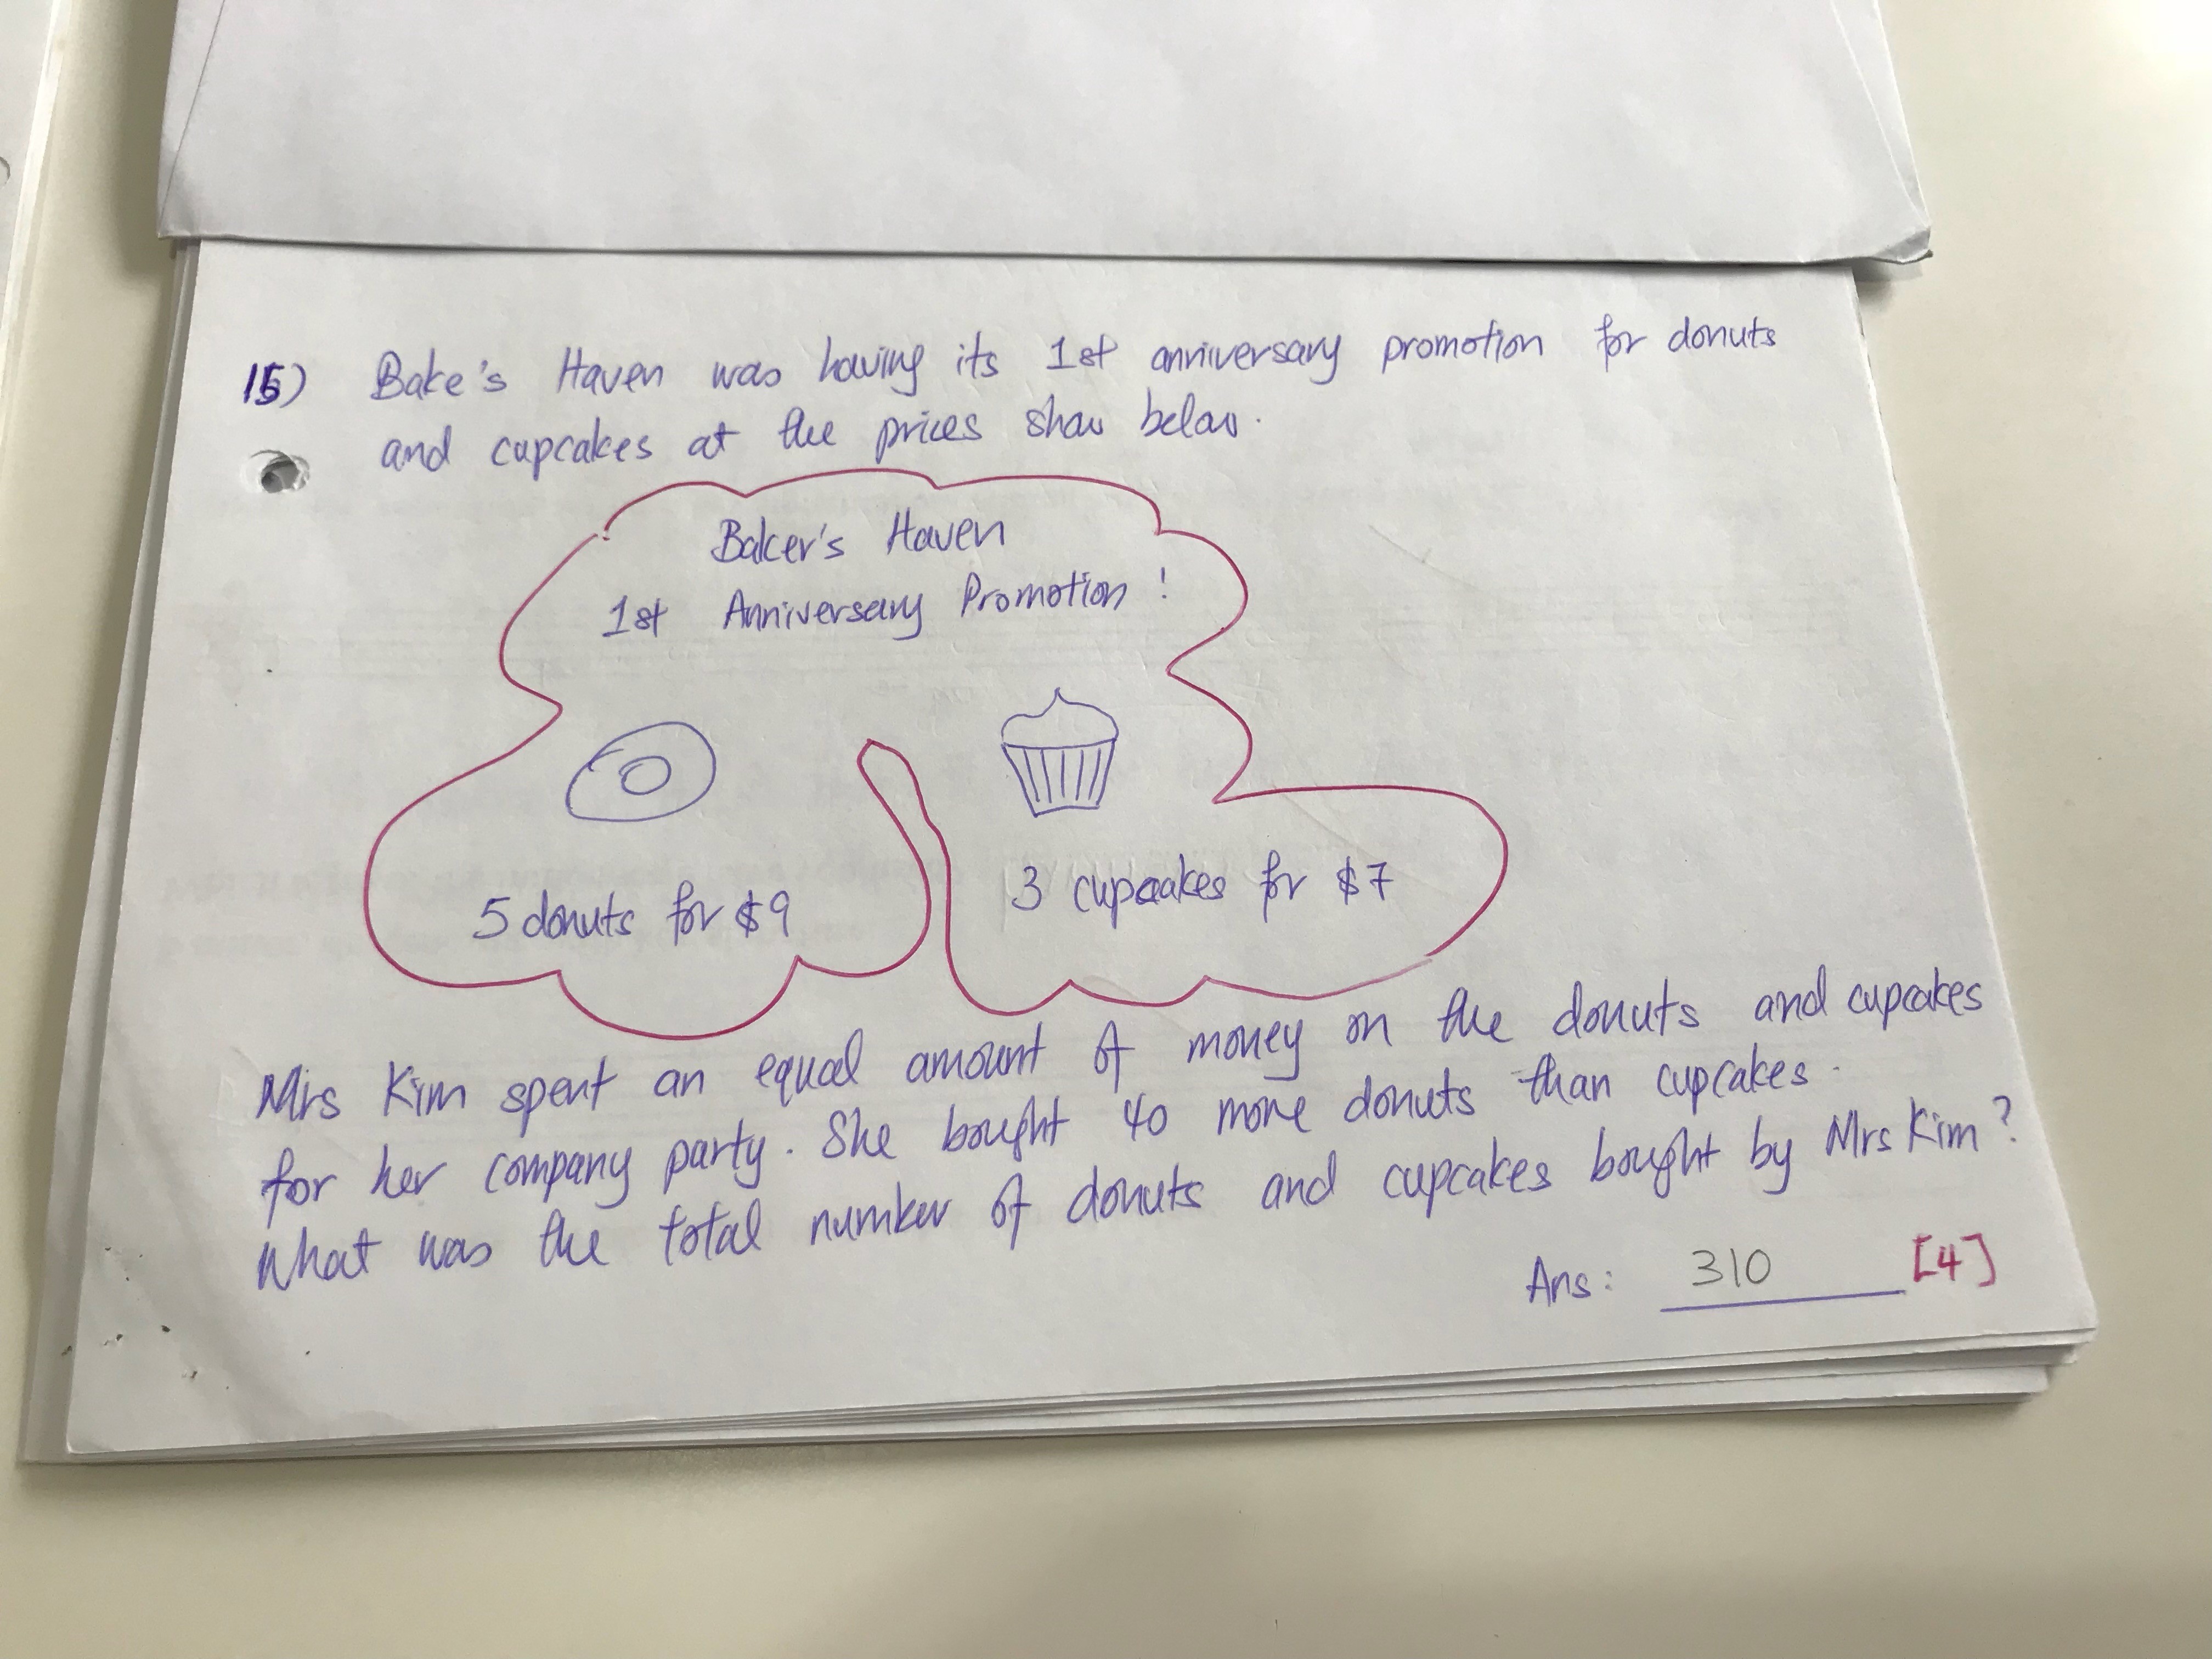 15) Bake's Haven was having its 1st anniversary promotion for donuts
and cupcakes at the prices show below.
Baker's Haven
1st Anniversary Promotion!
5 donuts for $9
3 cupcakes for $7
Mrs Kim spent an equal amount of money on the donuts and cupcakes
for her company party. She bought 40 more donuts than cupcakes.
What was the total number of donuts and cupcakes bought by Mrs Kim?
Ans: 310 [4]